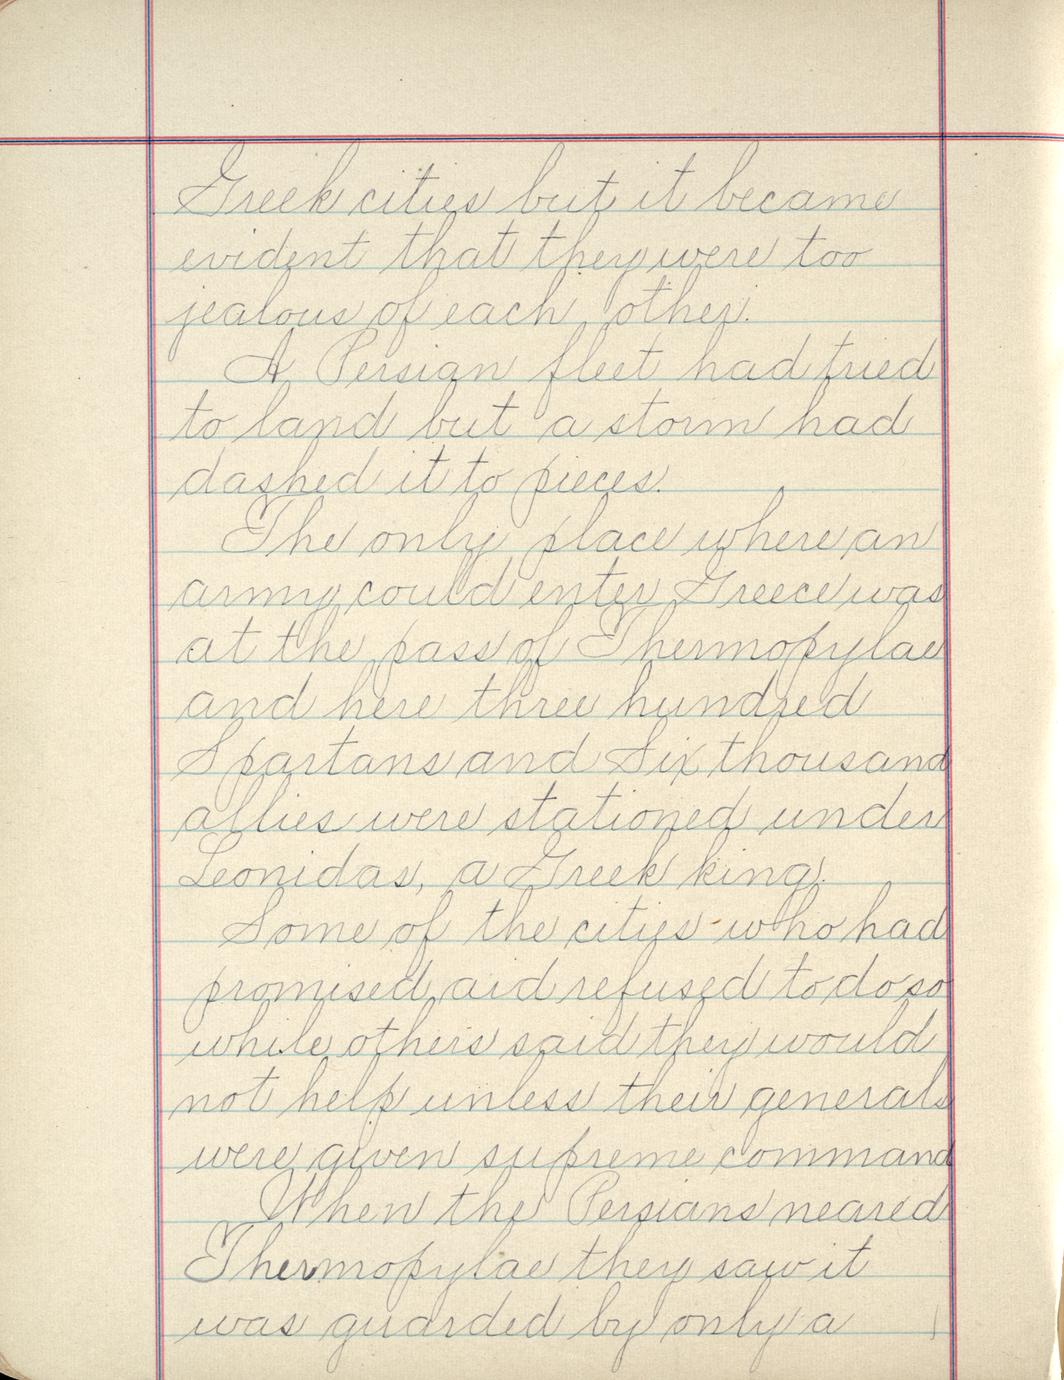 Greek cities but it became
evident that they were too
jealous of each other.
A Persian fleet had tried
to land but a storm had
dashed it to pieces.
The only place where an
army could enter Greece was
at the pass of Thermopylae
and here three hundred
Spartans and Six thousand
allies were stationed under
Leonidas, a Greek king.
Some of the cities who had
promised aid refused to do so
while others said they would
not help unless their generals
were given supreme command
When the Persians neared
Thermopylae they saw it
was guarded by only a